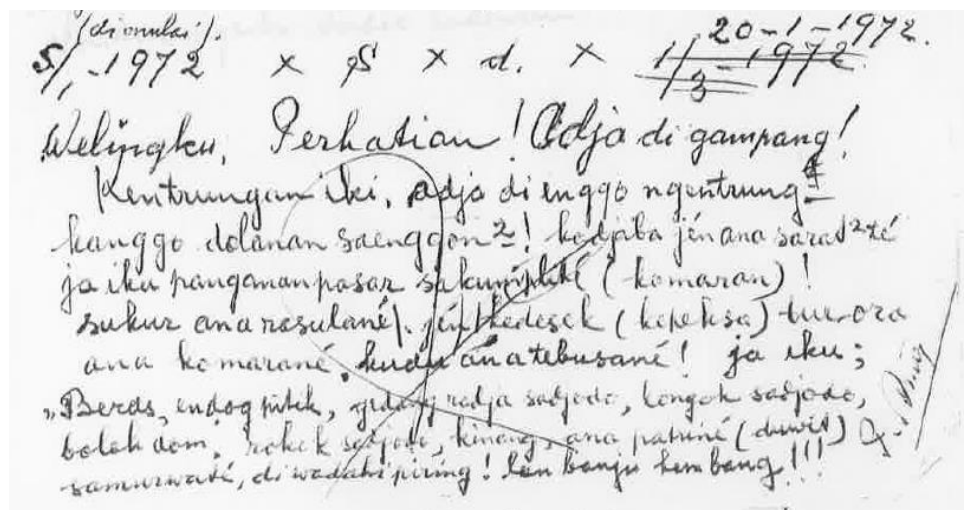 (dimulai).
5/1-1972 × S × d. × 20-1-1972.
1/3-1972
Welingku, Perhatian! Adja di gampang!
Kentrungan iki, adja di enggo ngentrung2
kanggo dolanan saenggon2! kedjaba jén ana sarat2 té
ja iku panganan pasar sakumplité (komaran)!
sukur ana rasulané). jén kedesek (kepeksa) tur ora
ana komarané, kudu ana tebusané! ja iku;
„Beras, endog pitik, gedang radja sadjodo, sadjodo,
bolah dom, rokok sadjodo, kinang, ana patuné (duwit)
samurwaté, di wadahi piring! lan banju kembang!!!